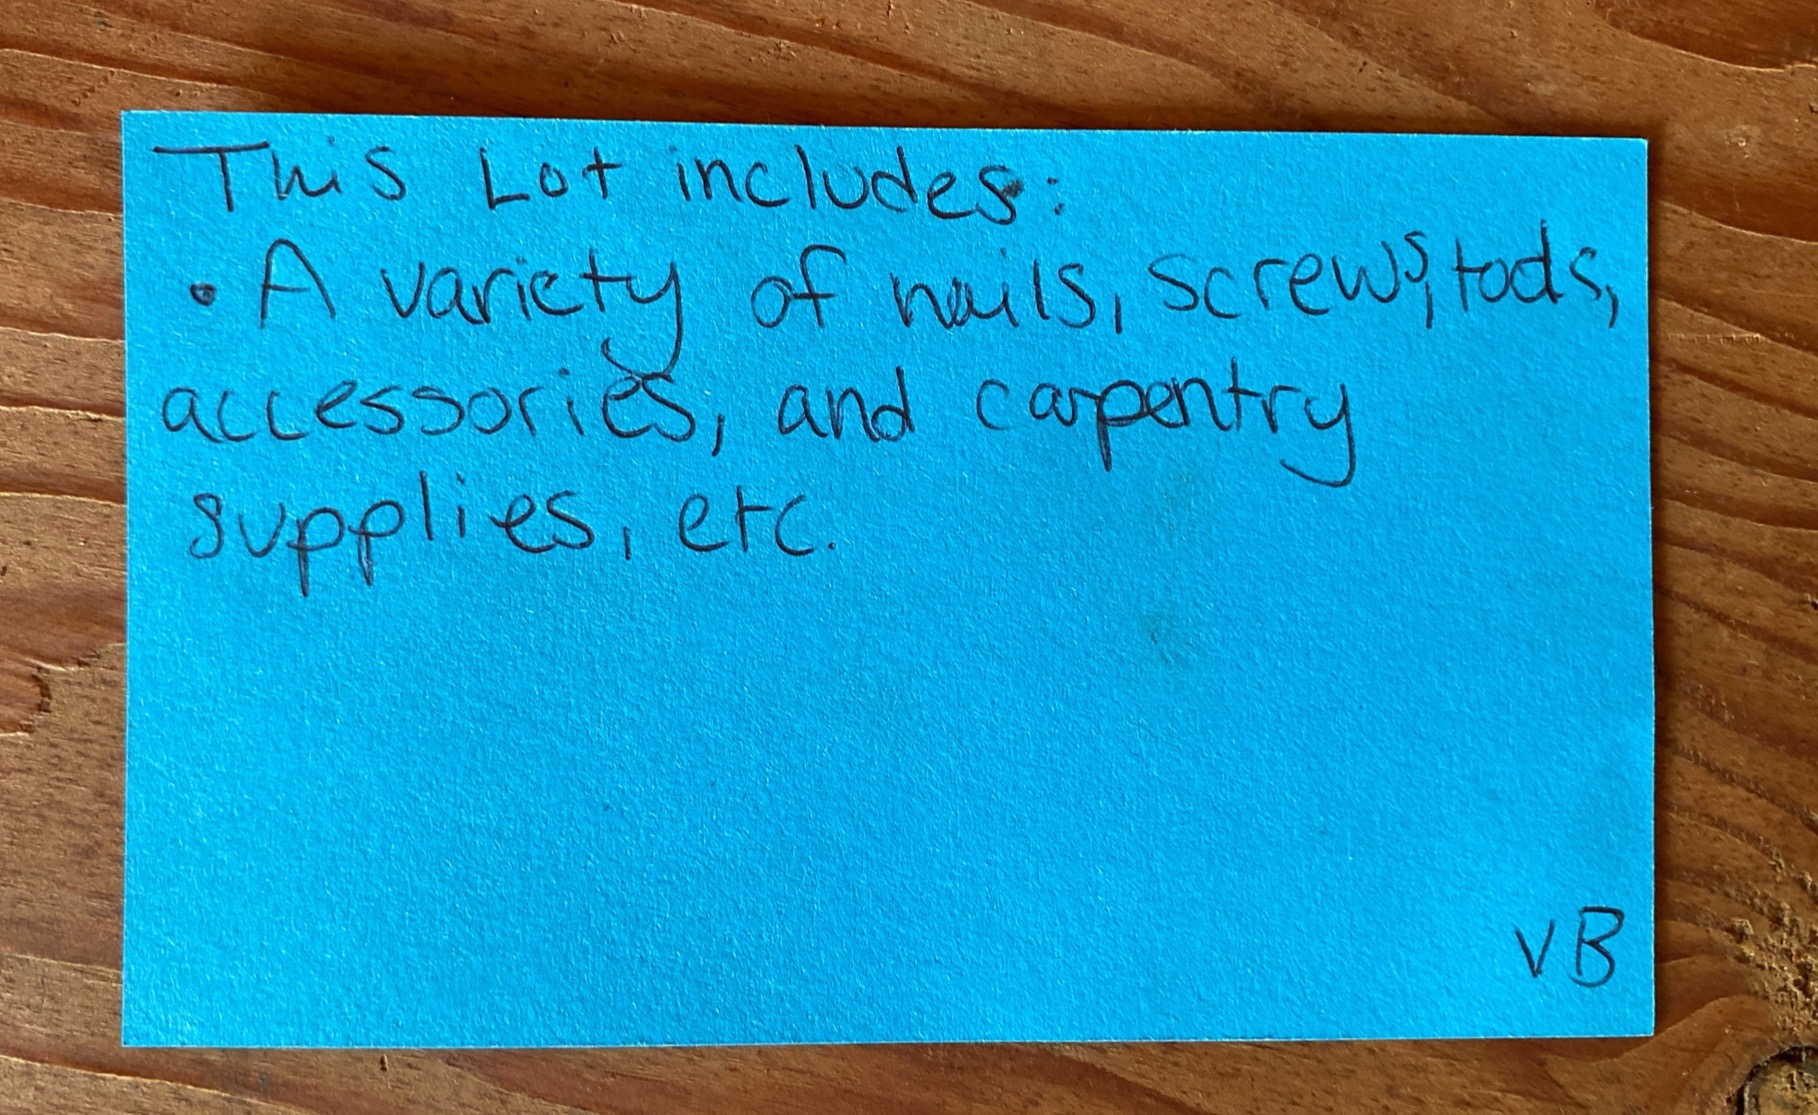 This Lot includes:
• A variety of nails, screws, tools,
accessories, and carpentry
supplies, etc.
VB